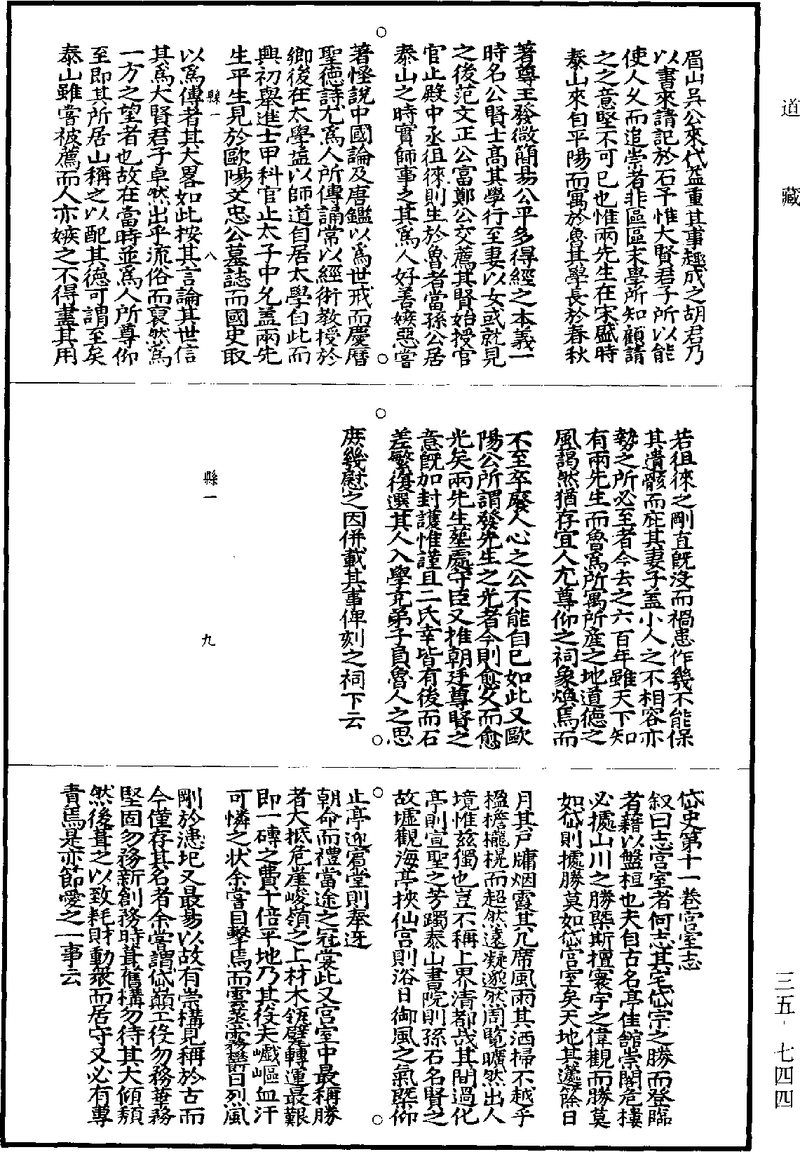 道藏
三五·七四四
眉山吳公來代益重其事趣成之胡君乃
以書來請記於石予惟大賢君子所以能
使人久而追崇者非區區末學所知顧請
之之意堅不可已也惟兩先生在宋盛時
泰山來自平陽而寓於魯其學長於春秋
著尊王發微簡易公平多得經之本義一
時名公賢士高其學行至妻以女或就見
之後范文正公富鄭公交薦其賢始授官
官止殿中丞徂徠則生於魯者當孫公居
泰山之時實師事之其爲人好善嫉惡嘗
著怪說中國論及唐鑑以爲世戒而慶曆
聖德詩尤爲人所傳誦常以經術教授於
鄉後在太學益以師道自居太學自此而
興初舉進士甲科官止太子中允蓋兩先
生平生見於歐陽文忠公墓誌而國史取
縣一 八
以爲傳者其大畧如此按其言論其世信
其爲大賢君子卓然出乎流俗而敻然爲
一方之望者也故在當時並爲人所尊仰
至即其所居山稱之以配其德可謂至矣
泰山雖嘗被薦而人亦嫉之不得盡其用
若徂徠之剛直旣沒而禍患作幾不能保
其遺骸而庇其妻子蓋小人之不相容亦
勢之所必至者今去之六百年雖天下知
有兩先生而魯爲所寓所產之地道德之
風藹然猶存宜人尤尊仰之祠象煥焉而
不至卒廢人心之公不能自已如此又歐
陽公所謂發先生之光者今則愈久而愈
光矣兩先生塟處守臣又推朝廷尊賢之
意旣加封護惟謹且二氏幸皆有後而石
差繁復選其人入學充弟子員魯人之思
庶幾慰之因併載其事俾刻之祠下云
縣一 九
岱史第十一卷宮室志
叙曰志宮室者何志其宅岱宗之勝而登臨
者藉以盤桓也夫自古名亭佳館崇閣危樓
必據山川之勝槩斯擅寰宇之偉觀而勝莫
如岱則據勝莫如岱宮室矣天地其邊際日
月其戶牖烟霞其几席風雨其洒掃不越乎
楹檐櫳棁而超然遠凝遬然周覧曠然出人
境惟兹獨也豈不稱上界清都哉其間過化
亭則宣聖之芳躅泰山書院則孫石名賢之
故墟觀海亭挾仙宮則浴日御風之氣槩仰
止亭迎賓堂則奉迓
朝命而禮當途之冠裳此又宮室中最稱勝
者大抵危崖峻嶺之上材木瓴甓轉運最艱
即一磚之費十倍平地乃其役夫巇嶇血汗
可憐之狀余嘗目擊焉而雲蒸霧鬱日烈風
剛於漶圮又最易以故有崇構見稱於古而
今僅存其名者余嘗謂岱巔工役勿務華務
堅固勿務新創務時葺舊構勿待其大傾頹
然後葺之以致耗財動衆而居守又必有專
責焉是亦節愛之一事云